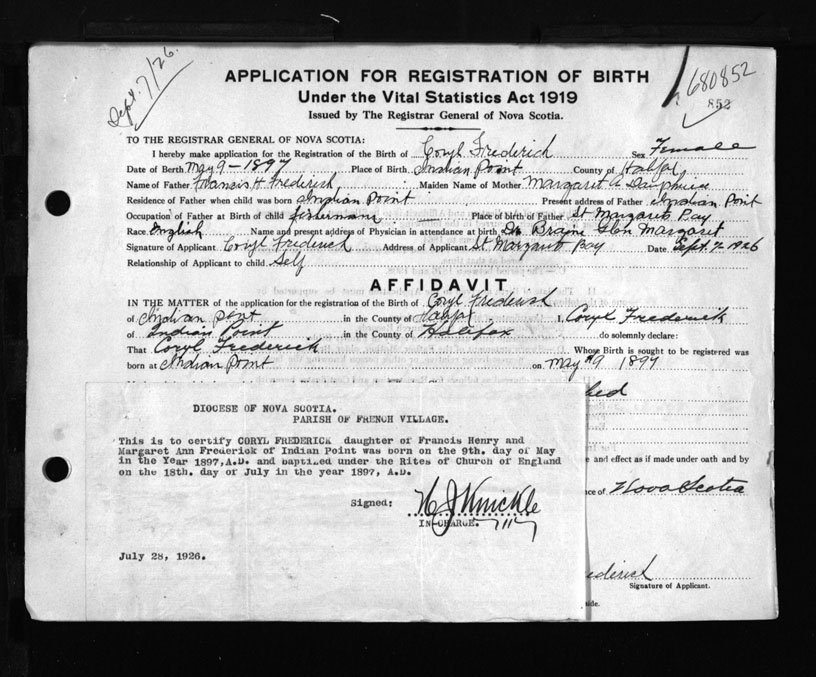 Sept. 7/26.
680852
852
APPLICATION FOR REGISTRATION OF BIRTH
Under the Vital Statistics Act 1919
Issued by The Registrar General of Nova Scotia.
TO THE REGISTRAR GENERAL OF NOVA SCOTIA:
I hereby make application for the Registration of the Birth of Coryl Frederick Sex Female
Date of Berth May 9 - 1897 Place of Birth Indian Point County of Halifax
Name of Father Francis H Frederick Maiden Name of Mother Margaret A
Residence of Father when child was born Indian Point Present address of Father Indian Point
Occupation of Father at Birth of child fisherman Place of birth of Father St Margarets Bay
Race English Name and present address of Physician in attendance at birth Dr Glen Margaret
Signature of Applicant Coryl Frederick Address of Applicant St Margarets Bay Date Sept. 7 1926
Relationship of Applicant to child Self
AFFIDAVIT
IN THE MATTER of the application for the registration of the Birth of Coryl Frederick
of Indian point in the County of Halifax I, Coryl Frederick
of Indian Point in the County of Halifax do solemnly declare:
That Coryl Frederick Whose Birth is sought to be registered was
born at Indian Point on May 9 1897
DIOCESE OF NOVA SCOTIA.
PARISH OF FRENCH VILLAGE.
This is to certify CORYL FREDERICK daughter of Francis Henry and
Margaret Ann Frederick of Indian Point was born on the 9th. day of May
in the Year 1897,A.D. and baptized under the Rites of Church of England
on the 18th. day of July in the year 1897, A.D.
Signed: H J Knickle
IN-CHARGE.
July 28, 1926.
e and effect as if made under oath and by
nce of Nova Scotia
ederick
Signature of Applicant.
side.